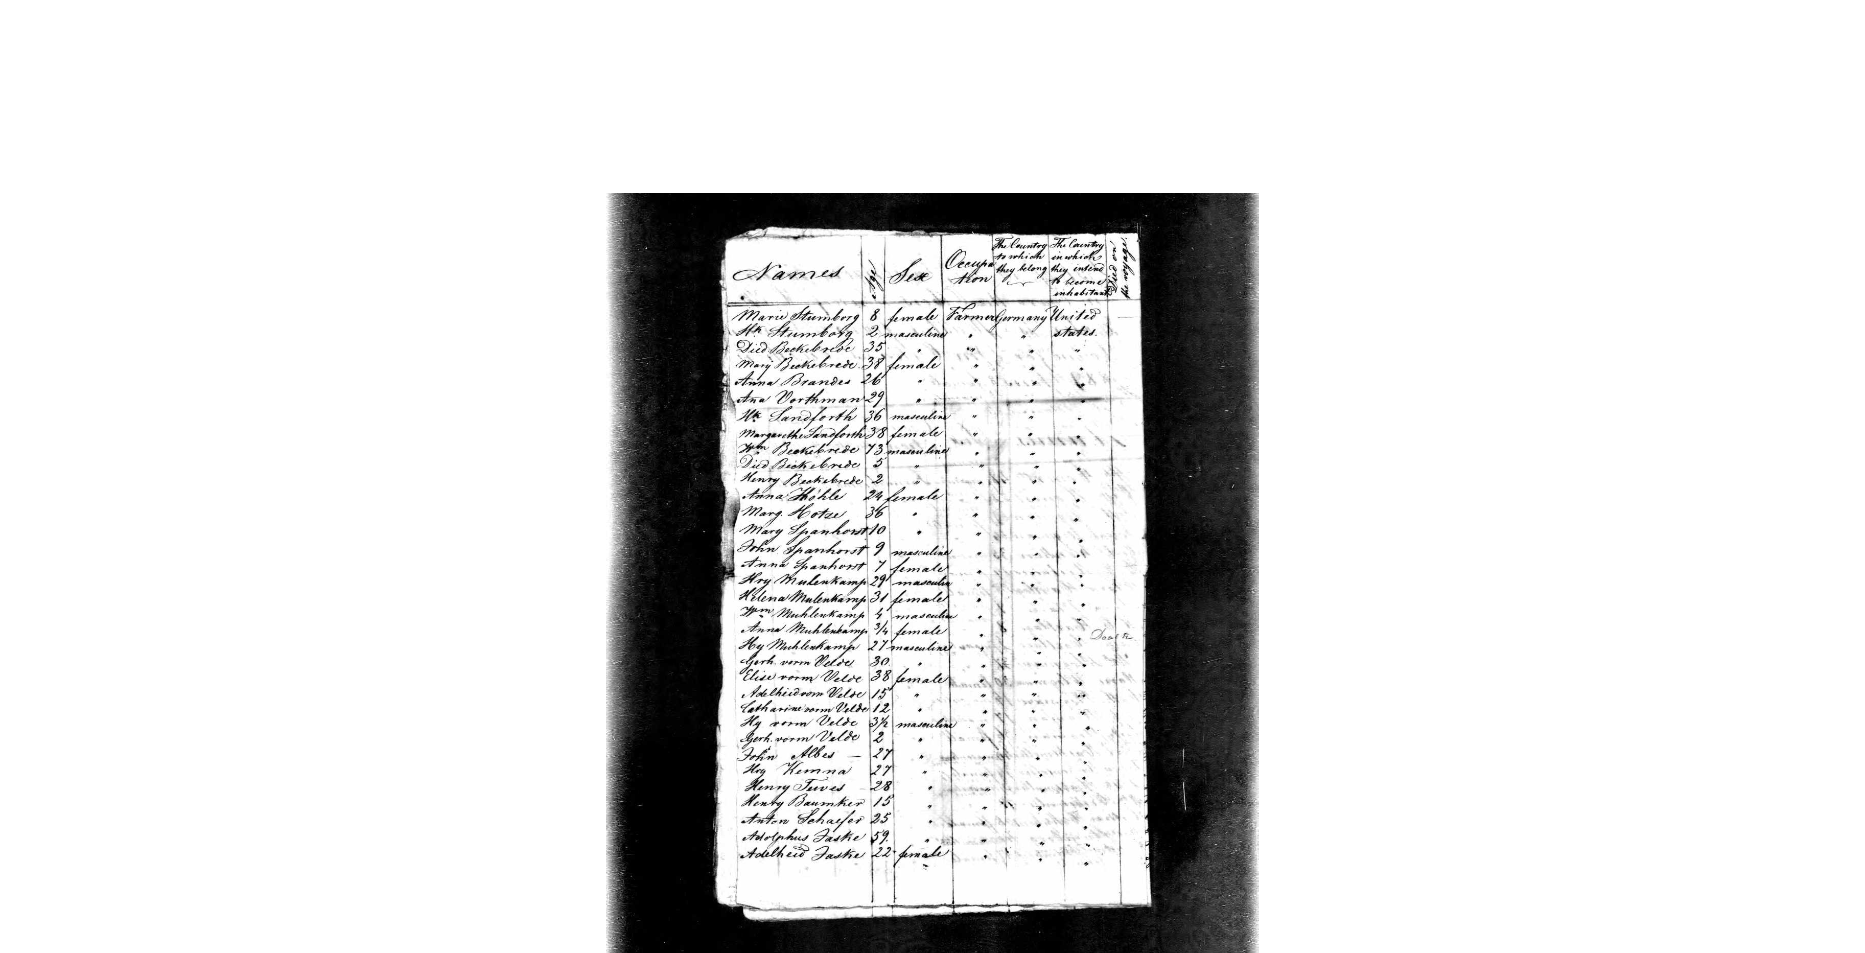 Names Age Sex Occupation The Country to which they belong The Country in which they intend to become inhabitants Died on the voyage.
Marie Stumborg 8 female Farmer Germany United
Hk Stumborg 2 masculine " " states.
Died Beckebrede 35 " " " "
Mary Beckebrede 38 female " " "
Anna Brandes 26 " " " "
Ana Vorthman 29 " " " "
Hk Sandforth 36 masculine " " "
Margarethe Sandforth 38 female " " "
Wm Beckebrede 73 masculine " " "
Died Beckebrede 5 " " " "
Henry Beckebrede 2 " " " "
Anna Höhle 24 female " " "
Marg. Hotze 36 " " " "
Mary Spanhorst 10 " " " "
John Spanhorst 9 masculine " " "
Anna Spanhorst 7 female " " "
Hry Mulenkamp 29 masculine " " "
Helena Mulenkamp 31 female " " "
Wm Muhlenkamp 4 masculine " " "
Anna Muhlenkamp 3/4 female " " "
Hy Muhlenkamp 27 masculine " " "
Gerh. vorm Velde 30 " " " "
Elise vorm Velde 38 female " " "
Adelheid vorm Velde 15 " " " "
Catharine vorm Velde 12 " " " "
Hy vorm Velde 3½ masculine " " "
Gerh. vorm Velde 2 " " " "
John Albes — 27 " " " "
Hry Kemna 27 " " " "
Henry Tuves 28 " " " "
Henry Baumker 15 " " " "
Anton Schaefer 25 " " " "
Adolphus Jaske 59 " " " "
Adelheid Jaske 22 female " " "